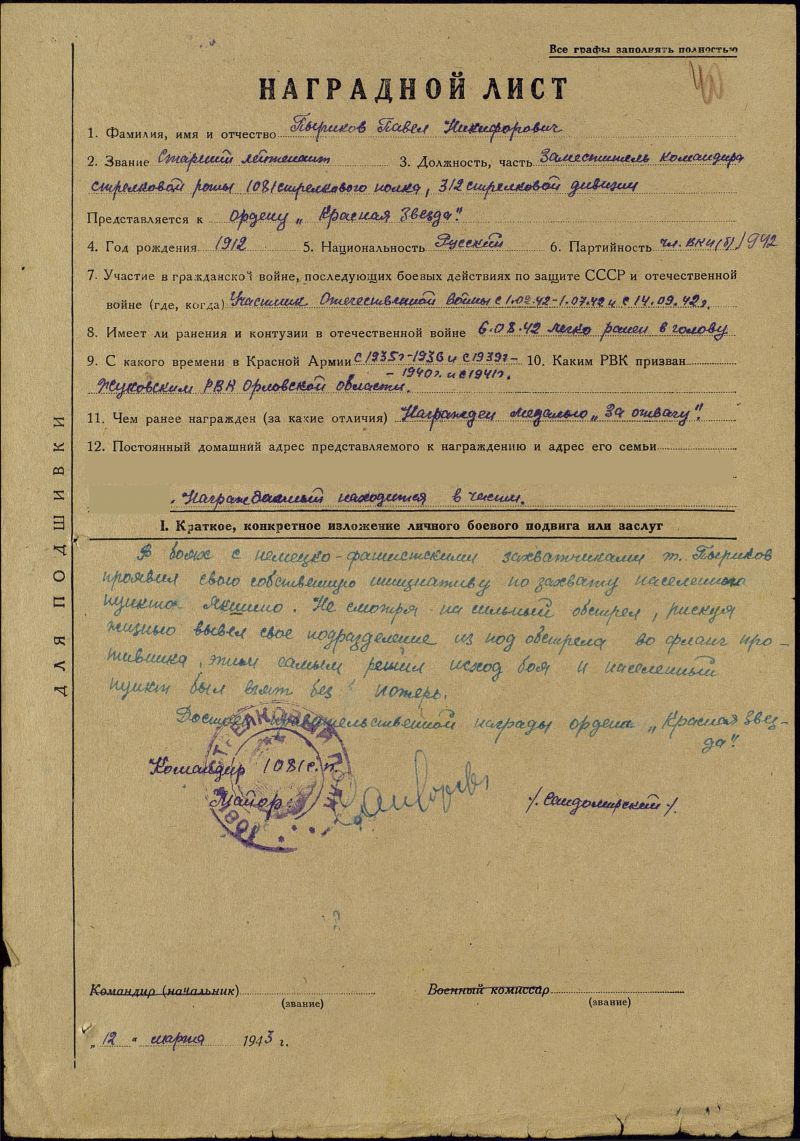 Все графы заполнять полностью
40
НАГРАДНОЙ ЛИСТ
1. Фамилия, имя и отчество Пыриков Павел Никифорович
2. Звание Старший лейтенант 3. Должность, часть Заместитель командира
стрелковой роты 1081 стрелкового полка, 312 стрелковой дивизии
Представляется к ордену „Красная Звезда".
4. Год рождения 1912 5. Национальность Русский 6. Партийность чл. ВКП(б) 1942
7. Участие в гражданской войне, последующих боевых действиях по защите СССР и отечественной
войне (где, когда) Участник Отечественной войны с 1.02.42-1.07.42 и с 14.09.42г.
8. Имеет ли ранения и контузии в отечественной войне 6.08.42 легко ранен в голову
9. С какого времени в Красной Армии с 1935г-1936 и с 1939г- 10. Каким РВК призван
- 1940г. и с 1941г.
Жуковским РВК Орловской области.
11. Чем ранее награжден (за какие отличия) Награжден медалью „За отвагу".
12. Постоянный домашний адрес представляемого к награждению и адрес его семьи
Награждаемый находится в части.
I. Краткое, конкретное изложение личного боевого подвига или заслуг
В боях с немецко-фашистскими захватчиками т. Пыриков
проявил свою собственную инициативу по захвату населенного
пункта Якшино. Не смотря на сильный обстрел, рискуя
жизнью вывел свое подразделение из под обстрела во фланг про-
тивника, этим самым решил исход боя и населенный
пункт был взят без потерь.
Достоин правительственной награды ордена „Красная Звез-
да".
Командир 1081 с.п.
Майор /Сандомирский/.
1081 СТРЕЛКОВЫЙ ПОЛК
Командир (начальник)
(звание)
Военный комиссар
(звание)
„12" марта 1943 г.
ДЛЯ ПОДШИВКИ